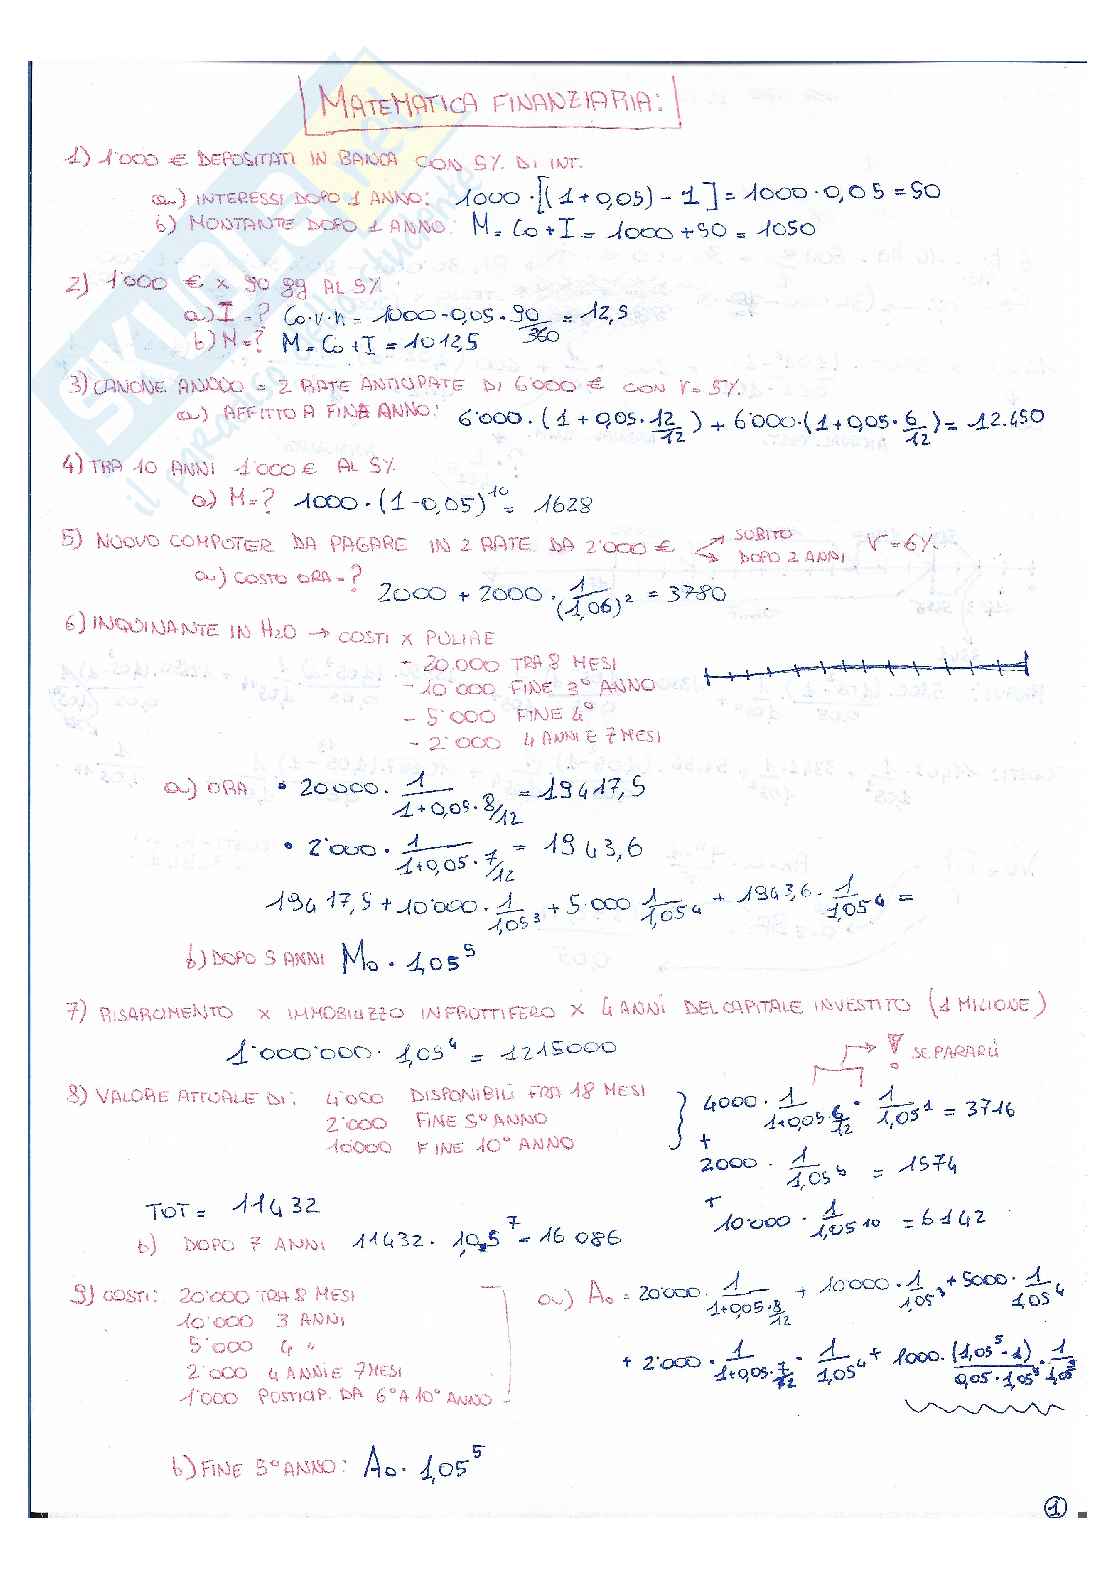 MATEMATICA FINANZIARIA:
1) 1'000 € DEPOSITATI IN BANCA CON 5% DI INT.
a) INTERESSI DOPO 1 ANNO: 1000·[(1+0,05)-1] = 1000·0,05 = 50
b) MONTANTE DOPO 1 ANNO: M = Co+I = 1000+50 = 1050
2) 1'000 € x 90 gg AL 5%
a) I = ? Co·r·n = 1000·0,05·90/360 = 12,5
b) M = ? M = Co+I = 1012,5
3) CANONE ANNUO = 2 RATE ANTICIPATE DI 6'000 € CON r = 5%
a) AFFITTO A FINE ANNO: 6'000·(1+0,05·12/12) + 6'000·(1+0,05·6/12) = 12.450
4) TRA 10 ANNI 1'000 € AL 5%
a) M = ? 1000·(1-0,05)^10 = 1628
5) NUOVO COMPUTER DA PAGARE IN 2 RATE DA 2'000 € → SUBITO → DOPO 2 ANNI r = 6%
a) COSTO ORA = ? 2000 + 2000·1/(1,06)^2 = 3780
6) INQUINANTE IN H2O → COSTI x PULIRE
- 20.000 TRA 8 MESI
- 10'000 FINE 3° ANNO
- 5'000 FINE 4°
- 2'000 4 ANNI E 7 MESI
a) ORA • 20000·1/(1+0,05·8/12) = 19417,5
• 2'000·1/(1+0,05·7/12) = 1943,6
19417,5 + 10'000·1/1,05^3 + 5'000 1/1,05^4 + 1943,6·1/1,05^4 =
b) DOPO 5 ANNI Mo·1,05^5
7) RISARCIMENTO x IMMOBILIZZO INFRUTTIFERO x 4 ANNI DEL CAPITALE INVESTITO (1 MILIONE)
1'000'000·1,05^4 = 1215000
→ ! SEPARARLI
8) VALORE ATTUALE DI: 4'000 DISPONIBILI FRA 18 MESI } 4000·1/(1+0,05·6/12)·1/1,05^1 = 3716
2'000 FINE 5° ANNO +
10'000 FINE 10° ANNO 2000·1/1,05^5 = 1574
+
TOT = 11432 10'000·1/1,05^10 = 6142
b) DOPO 7 ANNI 11432·10,5^7 = 16086
9) COSTI: 20'000 TRA 8 MESI a) Ao = 20'000·1/(1+0,05·8/12) + 10'000·1/1,05^3 + 5000·1/1,05^4
10'000 3 ANNI
5'000 4 "
2'000 4 ANNI E 7 MESI + 2'000·1/(1+0,05·7/12)·1/1,05^4 + 1000·(1,05^5-1)/(0,05·1,05^5)·1/1,05^5
1'000 POSTICIP. DA 6° A 10° ANNO
b) FINE 5° ANNO: Ao·1,05^5
1
SKUOLA.net
il paradiso dello studente